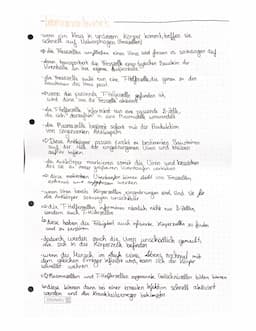 Immunantwort
wenn ein Virus in unseren Körper kommt, treffen sie
schnell auf Makrophagen (Fresszellen)
→ die Fresszellen umfließen einen Virus und fressen es sozusagen auf
→ dann transportiert die Fresszelle einen typischen Baustein der
Virushülle an ihre eigene Außenfläche
→ die Fresszelle sucht nun eine T-Helferzelle, die genau zu den
Bausteinen des Virus passt
→ wenn die passende T-Helferzelle gefunden ist,
wird diese von der Fresszelle aktiviert
→ die T-Helferzelle informiert nun eine passende B-Zelle,
die sich daraufhin in eine Plasmazelle umwandelt
→ die Plasmazelle beginnt sofort mit der Produktion
von passenden Antikörpern
→ Diese Antikörper passen exakt zu bestimmten Bausteinen
auf der Hülle der eingedrungenen Viren und müssen
→ die Antikörper markieren somit die Viren und bewirken
dass sie zu einer größeren Virusgruppe verkleben
→ diese verklebten Virenklumpen können dann von Fresszellen
erkannt und aufgefressen werden
→ wenn Viren bereits in Körperzellen eingedrungen sind, sind sie für
die Antikörper sozusagen unsichtbar
→ die T-Helferzellen informieren nämlich nicht nur B-Zellen,
sondern auch T-Killerzellen
→ diese haben die Fähigkeit auch infizierte Körperzellen zu finden
und zu zerstören
→ dadurch werden auch die Viren unschädlich gemacht,
die sich in der Körperzelle befinden
→ wenn der Mensch im Laufe seines Lebens nochmal mit
dem gleichen Erreger infiziert wird, kann sich der Körper
schneller wehren
→ Plasmazellen und T-Helferzellen sogenannte Gedächtniszellen bilden können
→ diese können dann bei einer erneuten Infektion schnell aktiviert
werden und die Krankheitserreger bekämpfen